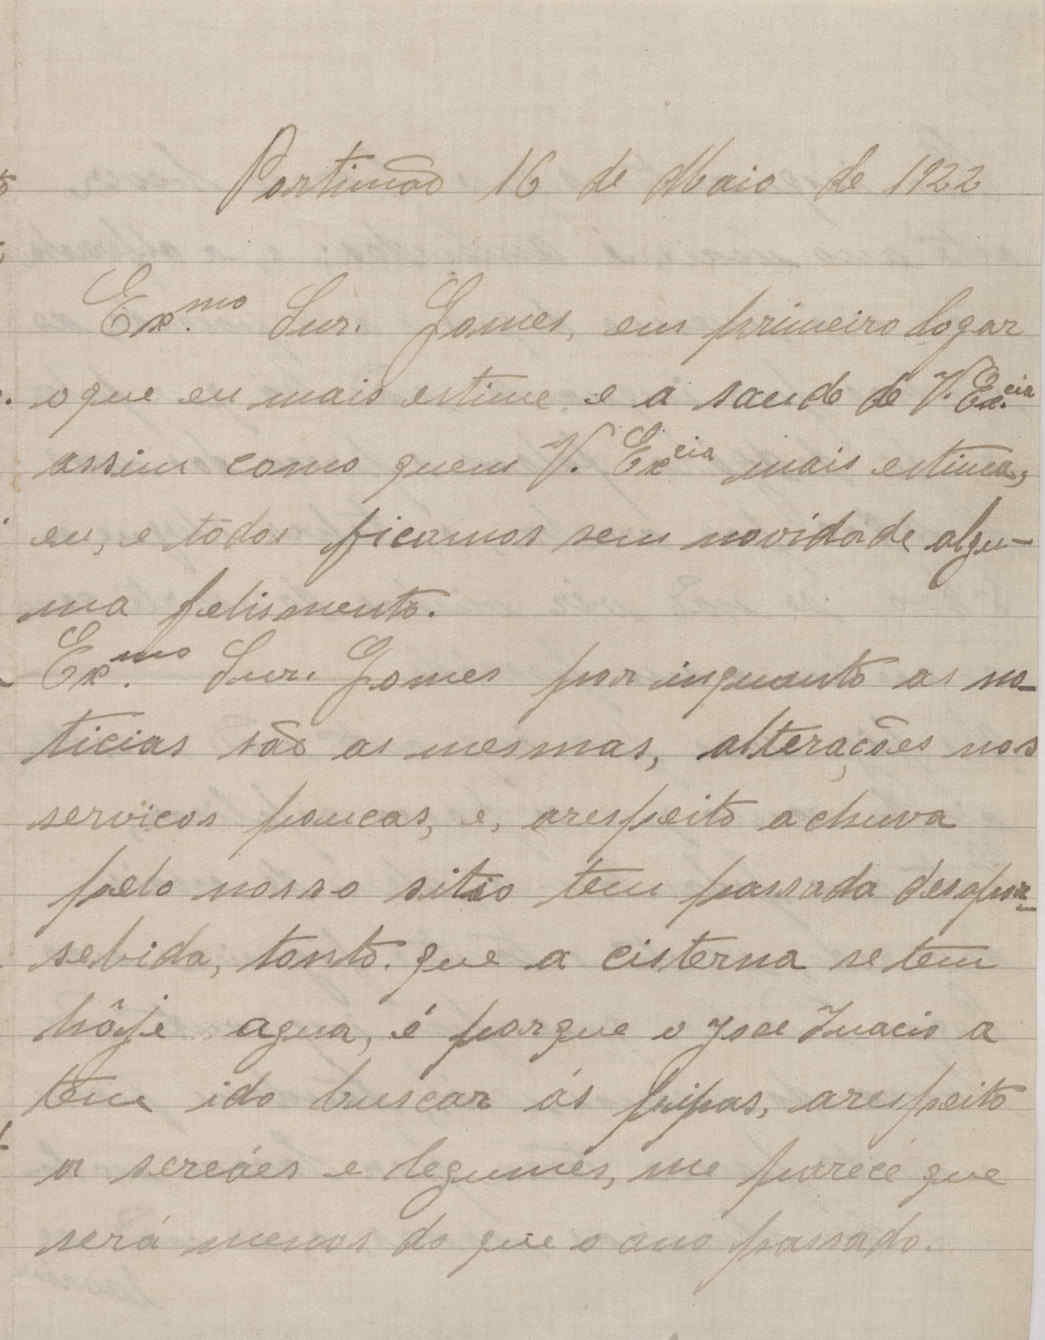 Portimão 16 de Maio de 1922
Ex.mo Snr. Gomes, em primeiro logar
o que eu mais estime e a saude de V. Ex.cia
assim como quem V. Excia mais estima,
eu, e todos ficamos sem novidade algu-
ma felismente.
Ex.mo Snr. Gomes por inquanto as no-
ticias são as mesmas, alterações nos
serviços poucas, e, arespeito a chuva
pelo nosso sitio tem passada desaper-
sebida, tanto que a cisterna se tem
hôje agua, é porque o Jose Inacio a
tem ido buscar ás pipas, arespeito
a sereáes e legumes, me parece que
será menos do que o ano passado.